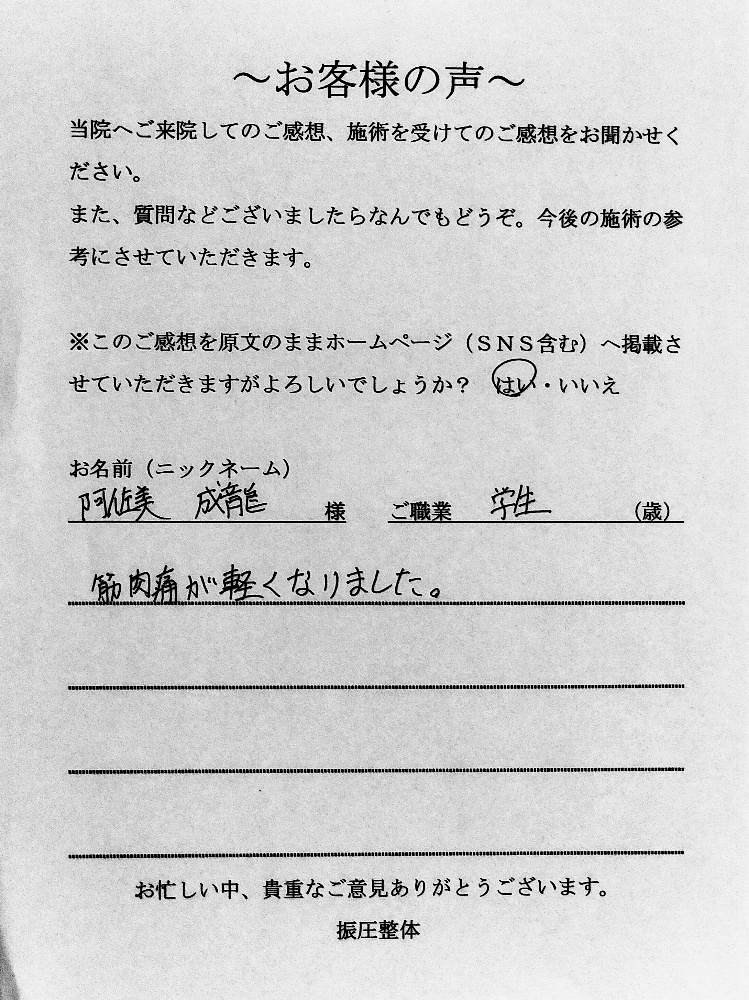 ～お客様の声～
当院へご来院してのご感想、施術を受けてのご感想をお聞かせく
ださい。
また、質問などございましたらなんでもどうぞ。今後の施術の参
考にさせていただきます。
※このご感想を原文のままホームページ（ＳＮＳ含む）へ掲載さ
せていただきますがよろしいでしょうか？　はい・いいえ
お名前（ニックネーム）
阿佐美　成龍　様　ご職業　学生　（歳）
筋肉痛が軽くなりました。
お忙しい中、貴重なご意見ありがとうございます。
振圧整体